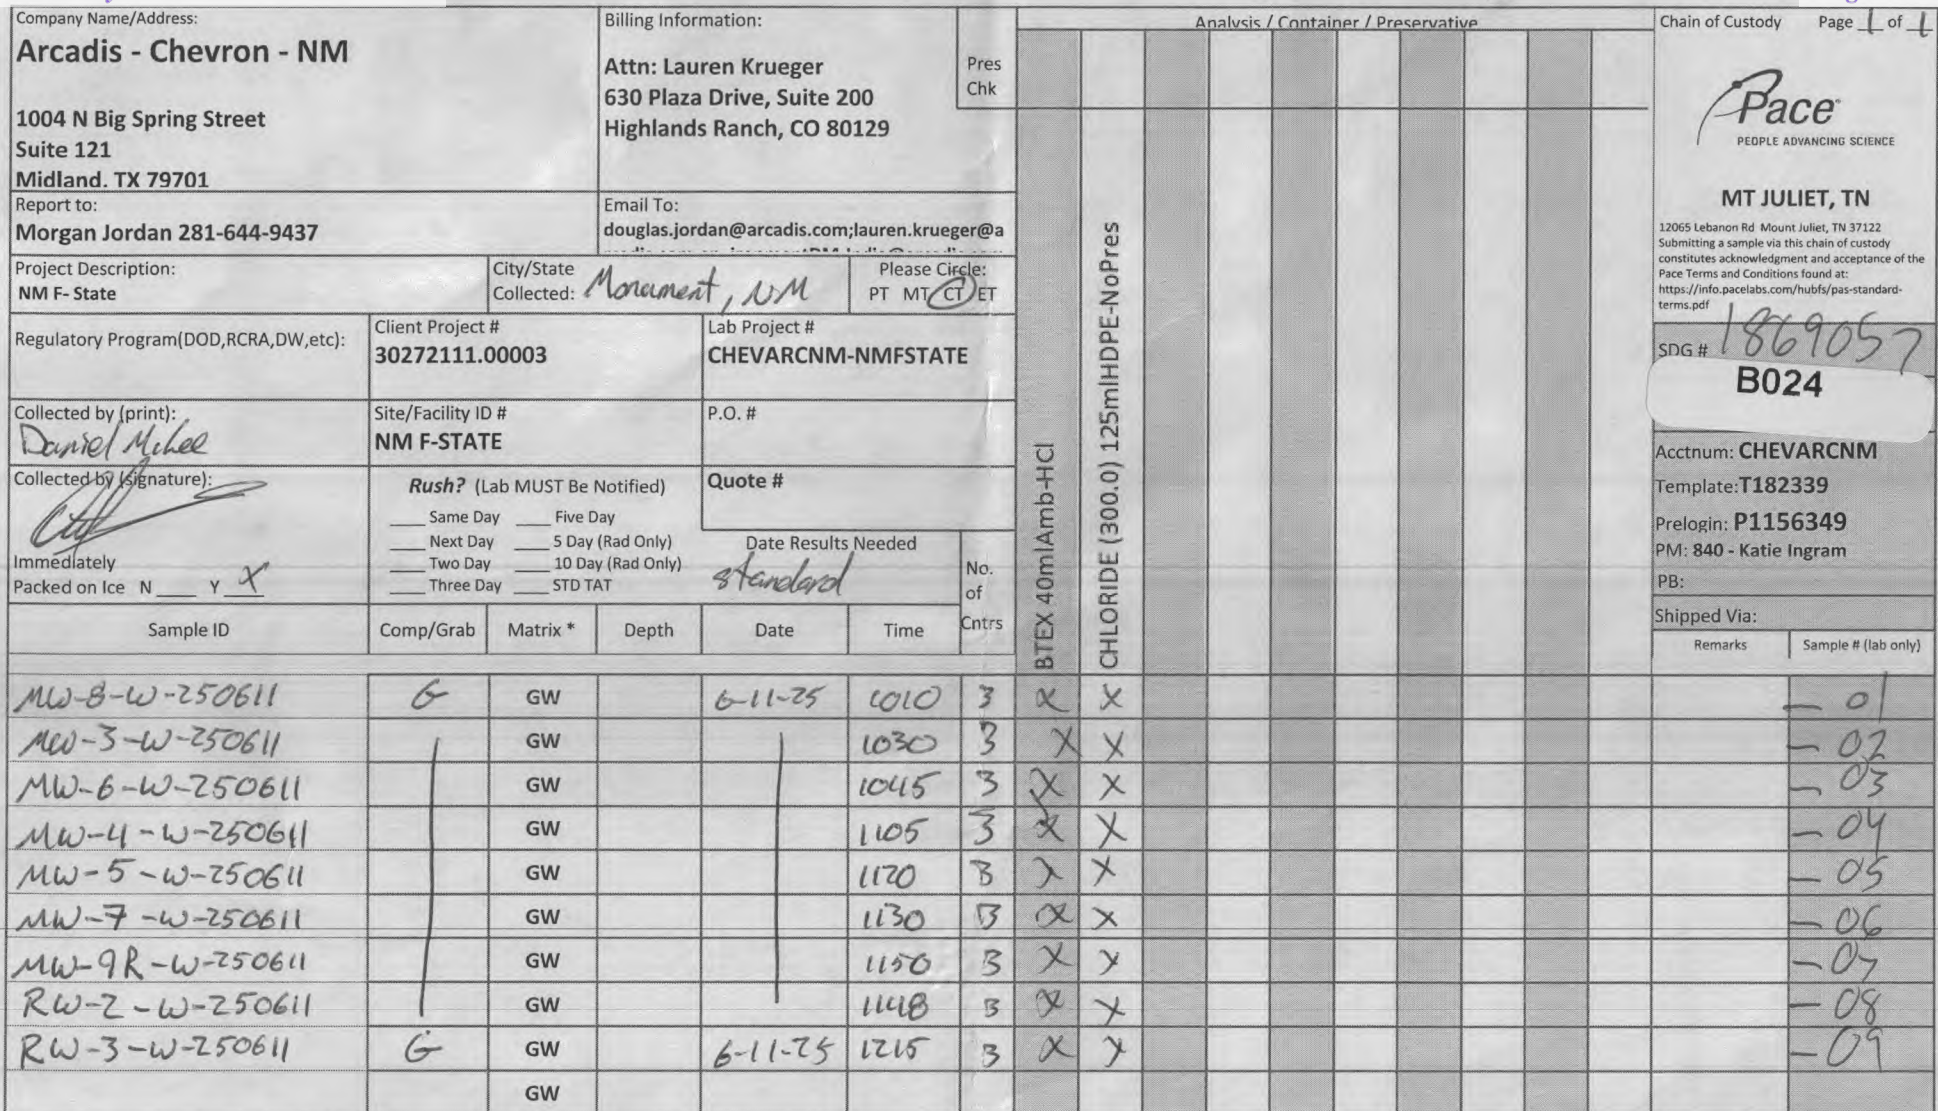 Company Name/Address:
Arcadis - Chevron - NM
1004 N Big Spring Street
Suite 121
Midland. TX 79701
Billing Information:
Attn: Lauren Krueger
630 Plaza Drive, Suite 200
Highlands Ranch, CO 80129
Pres
Chk
Analysis / Container / Preservative
Chain of Custody Page 1 of 1
Pace
PEOPLE ADVANCING SCIENCE
MT JULIET, TN
12065 Lebanon Rd Mount Juliet, TN 37122
Submitting a sample via this chain of custody
constitutes acknowledgment and acceptance of the
Pace Terms and Conditions found at:
https://info.pacelabs.com/hubfs/pas-standard-
terms.pdf
Report to:
Morgan Jordan 281-644-9437
Email To:
douglas.jordan@arcadis.com;lauren.krueger@a
Project Description:
NM F- State
City/State
Collected: Monument, NM
Please Circle:
PT MT CT ET
Regulatory Program(DOD,RCRA,DW,etc):
Client Project #
30272111.00003
Lab Project #
CHEVARCNM-NMFSTATE
SDG # 1869057
B024
Collected by (print):
Daniel McKee
Site/Facility ID #
NM F-STATE
P.O. #
Acctnum: CHEVARCNM
Template:T182339
Prelogin: P1156349
PM: 840 - Katie Ingram
PB:
Shipped Via:
Collected by (signature):
Immediately
Packed on Ice N ____ Y X
Rush? (Lab MUST Be Notified)
____ Same Day ____ Five Day
____ Next Day ____ 5 Day (Rad Only)
____ Two Day ____ 10 Day (Rad Only)
____ Three Day ____ STD TAT
Quote #
Date Results Needed
standard
No.
of
Cntrs
BTEX 40mlAmb-HCl
CHLORIDE (300.0) 125mlHDPE-NoPres
Sample ID Comp/Grab Matrix * Depth Date Time Remarks Sample # (lab only)
MW-8-W-250611 G GW 6-11-25 1010 3 X X - 01
MW-3-W-250611 GW 1030 3 X X - 02
MW-6-W-250611 GW 1045 3 X X - 03
MW-4-W-250611 GW 1105 3 X X - 04
MW-5-W-250611 GW 1120 3 X X - 05
MW-7-W-250611 GW 1130 3 X X - 06
MW-9R-W-250611 GW 1150 3 X X - 07
RW-2-W-250611 GW 1148 3 X X - 08
RW-3-W-250611 G GW 6-11-25 1215 3 X X - 09
GW